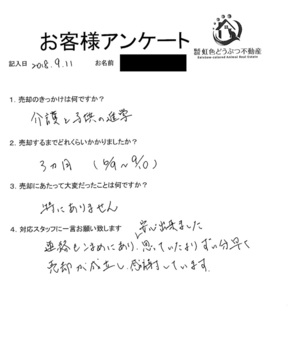 お客様アンケート
株式会社 虹色どうぶつ不動産
記入日 2018.9.11 お名前
1. 売却のきっかけは何ですか?
介護と子供の進学
2. 売却するまでどれくらいかかりましたか?
3ヵ月
3. 売却にあたって大変だったことは何ですか?
特にありません
4. 対応スタッフに一言お願い致します
安心出来ました
連絡もこまめにあり、思っていたよりずい分早く
売却が成立し、感謝しています。